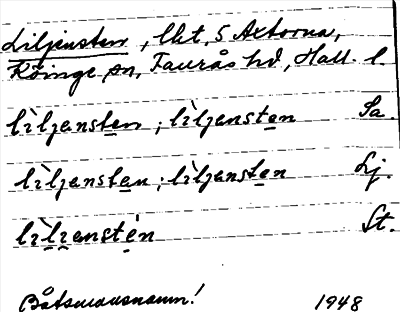 Liljensten, lht, 5 Axtorna,
Röinge sn, Faurås hd, Hall. l.
lìljensten ; lìljensten Sa.
lìljensten ; lìljensten Lj.
lìljenstén St.
Båtsmansnamn! 1948